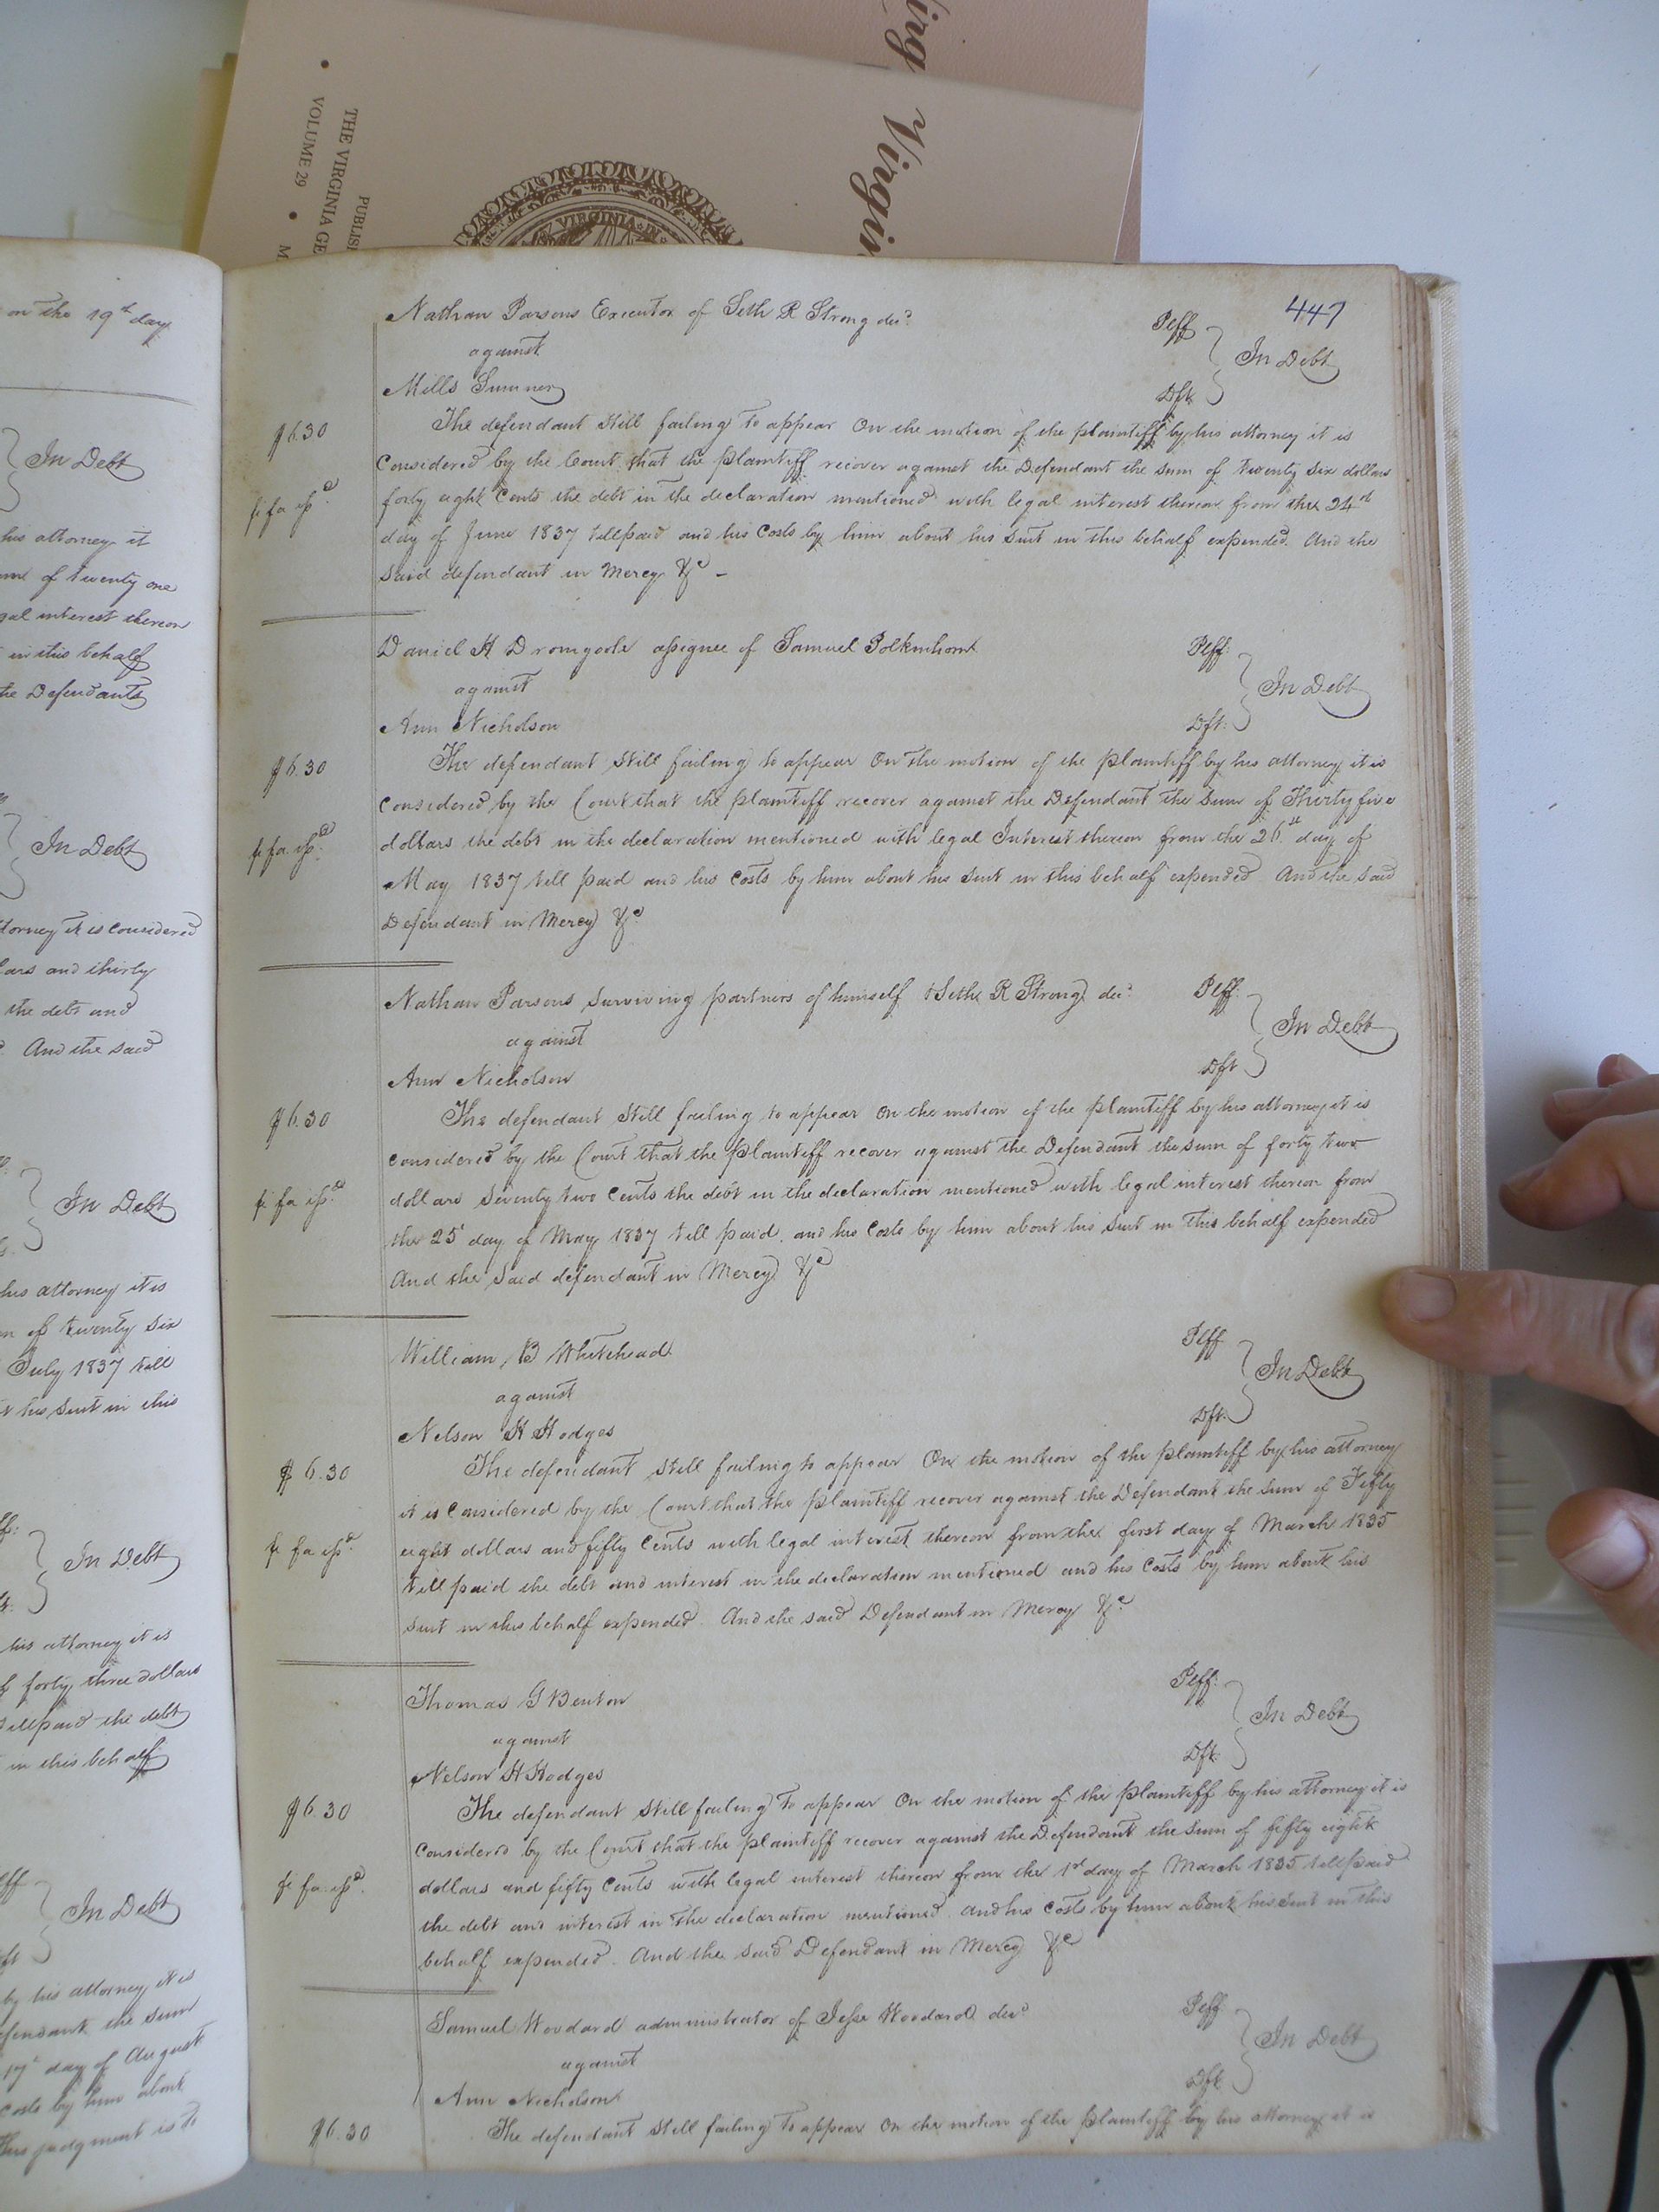 ing Virgin
PUBLIS
THE VIRGINIA GE
VOLUME 29
M
VIRGINIA IN
on the 19th day
In Debt
his attorney it
of twenty one
gal interest thereon
in this behalf
the Defendants
In Debt
torney it is considered
lars and thirty
the debt and
And the said
In Debt
his attorney it is
of twenty six
July 1837 till
his suit in this
In Debt
his attorney it is
of forty three dollars
till paid the debt
in this behalf
In Debt
by his attorney it is
efendant the sum
17th day of August
costs by him about
This judgment is to
447
Nathan Parsons Executor of Seth R Strong decd Plff
against In Debt
Mills Sumner Dft
$6.30 The defendant still failing to appear On the motion of the plaintiff by his attorney it is
Considered by the Court that the plaintiff recover against the Defendant the sum of twenty six dollars
fi fa issd forty eight Cents the debt in the declaration mentioned with legal interest thereon from the 24d
day of June 1837 till paid and his Costs by him about his suit in this behalf expended. And the
said defendant in Mercy &c -
Daniel H Dromgoole assignee of Samuel Polkinhorn Plff:
against In Debt
Ann Nicholson Dft:
$6.30 The defendant still failing to appear On the motion of the plaintiff by his attorney it is
Considered by the Court that the plaintiff recover against the Defendant the sum of Thirty five
fi fa issd dollars the debt in the declaration mentioned with legal Interest thereon from the 26th day of
May 1837 till paid and his costs by him about his suit in this behalf expended And the said
Defendant in Mercy &c
Nathan Parsons surviving partners of himself & Seth R Strong decd Plff:
against In Debt
Ann Nicholson Dft
$6.30 The defendant still failing to appear On the motion of the plaintiff by his attorney it is
considered by the Court that the plaintiff recover against the Defendant the sum of forty two
fi fa issd dollars seventy two Cents the debt in the declaration mentioned with legal interest thereon from
the 25 day of May 1837 till paid, and his Costs by him about his suit in this behalf expended
And the said defendant in Mercy &c
William B Whitehead Plff
against In Debt
Nelson H Hodges Dft.
$6.30 The defendant still failing to appear On the motion of the plaintiff by his attorney
it is Considered by the Court that the plaintiff recover against the Defendant the sum of Fifty
fi fa issd eight dollars and fifty Cents with legal interest thereon from the first day of March 1835
till paid the debt and interest in the declaration mentioned and his Costs by him about his
suit in this behalf expended. And the said Defendant in Mercy &c
Thomas G Benton Plff:
against In Debt
Nelson H Hodges Dft:
$6.30 The defendant still failing to appear On the motion of the plaintiff by his attorney it is
Considered by the Court that the plaintiff recover against the Defendant the sum of fifty eight
fi fa issd dollars and fifty Cents with legal interest thereon from the 1st day of March 1835 till paid
the debt and interest in the declaration mentioned. and his Costs by him about his suit in this
behalf expended. And the said Defendant in Mercy &c
Samuel Woodard administrator of Jesse Woodard decd Plff
against In Debt
Ann Nicholson Dft
$6.30 The defendant still failing to appear On the motion of the plaintiff by his attorney it is